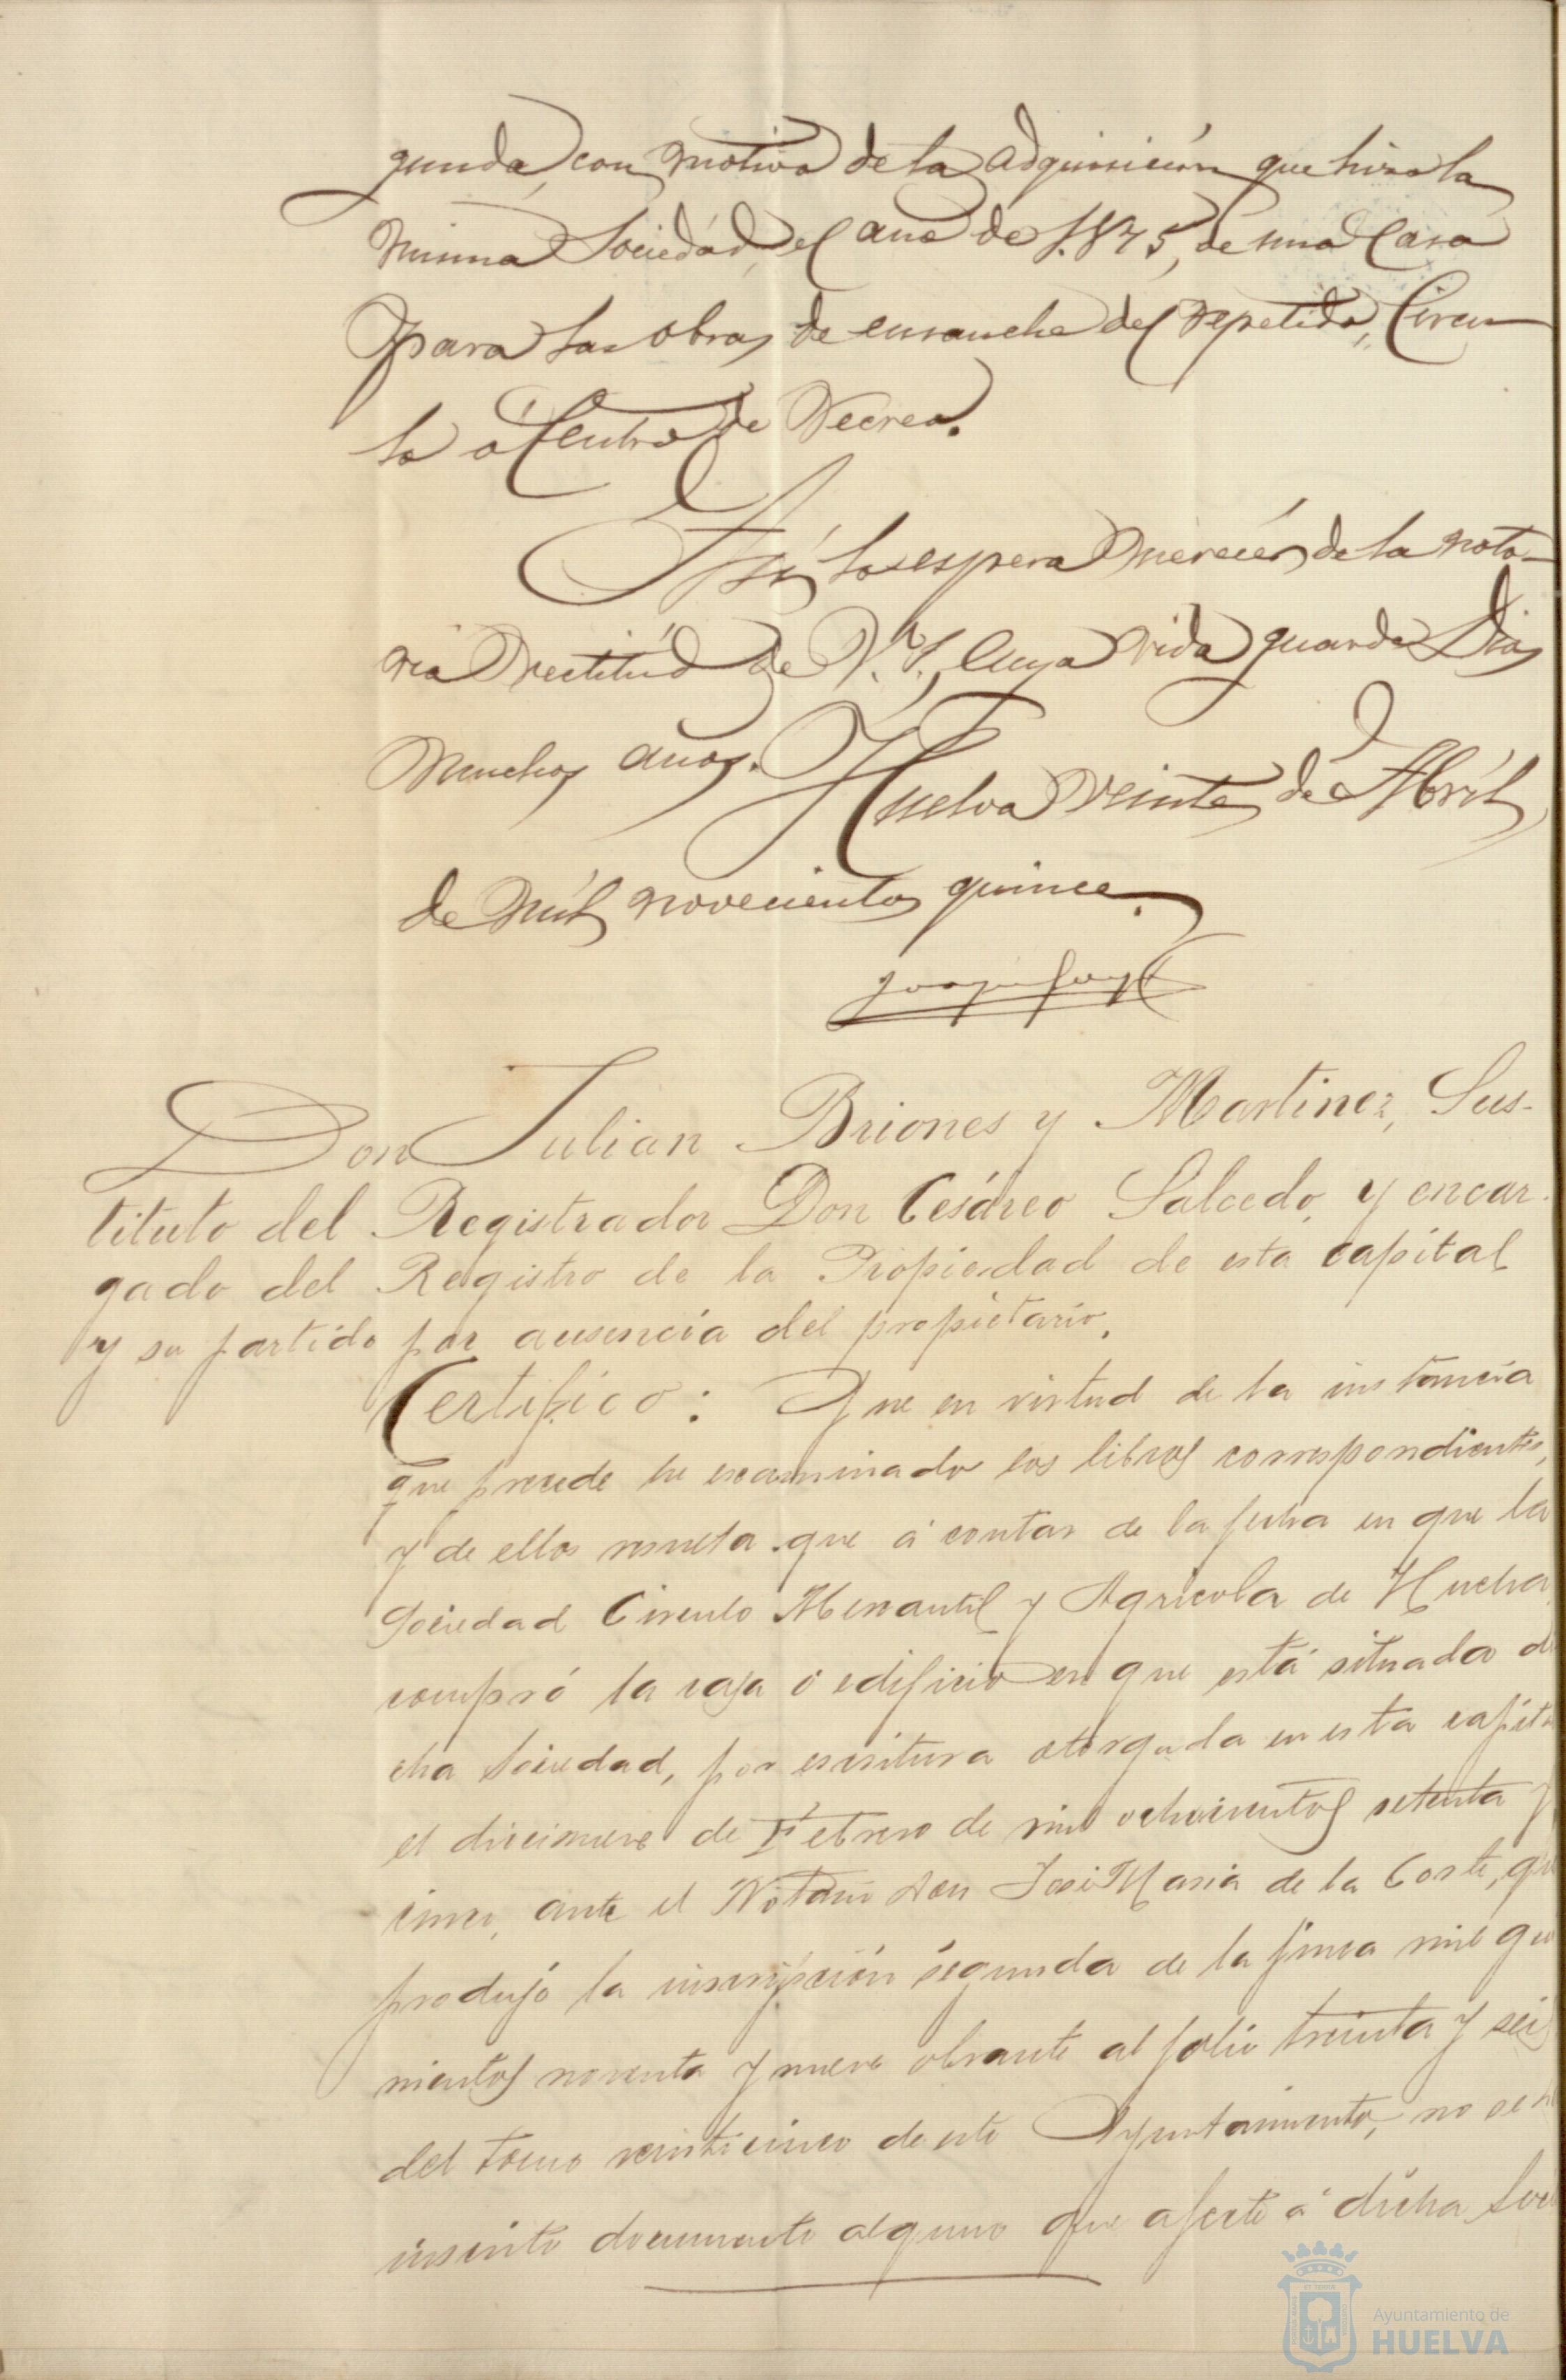 gunda, con motivo de la adquisición que hizo la
misma Sociedád, el año de 1.875, de una Casa
para las obras de ensanche del repetido, Círcu-
lo ó Centro de Recreo.
Así lo espera merecér de la noto-
ria rectitúd de V. S., cuya vida guarde Dios
muchos años. Huelva veinte de Abríl
de míl novecientos quince.
Don Julian Briones y Martinez, Sus-
tituto del Registrador Don Cesáreo Salcedo, y encar-
gado del Registro de la Propiedad de esta capital
y su partido por ausencia del propietario,
Certifico: Que en virtud de la instancia
que precede he examinado los libros correspondientes,
y de ellos resulta que á contar de la fecha en que la
Sociedad Circulo Mercantil y Agricola de Huelva
compró la casa ó edificio en que está situada di
cha Sociedad, por escritura otorgada en esta capital
el diecinueve de Febrero de mil ochocientos setenta y
cinco, ante el Notario Don José Maria de la Corte, que
produjó la inscripción segunda de la finca mil qui
nientos noventa y nueve obrante al folio treinta y seis
del tomo veinticinco de este Ayuntamiento, no se
inscrito documento alguno que afecte á dicha Soci
Ayuntamiento de
HUELVA